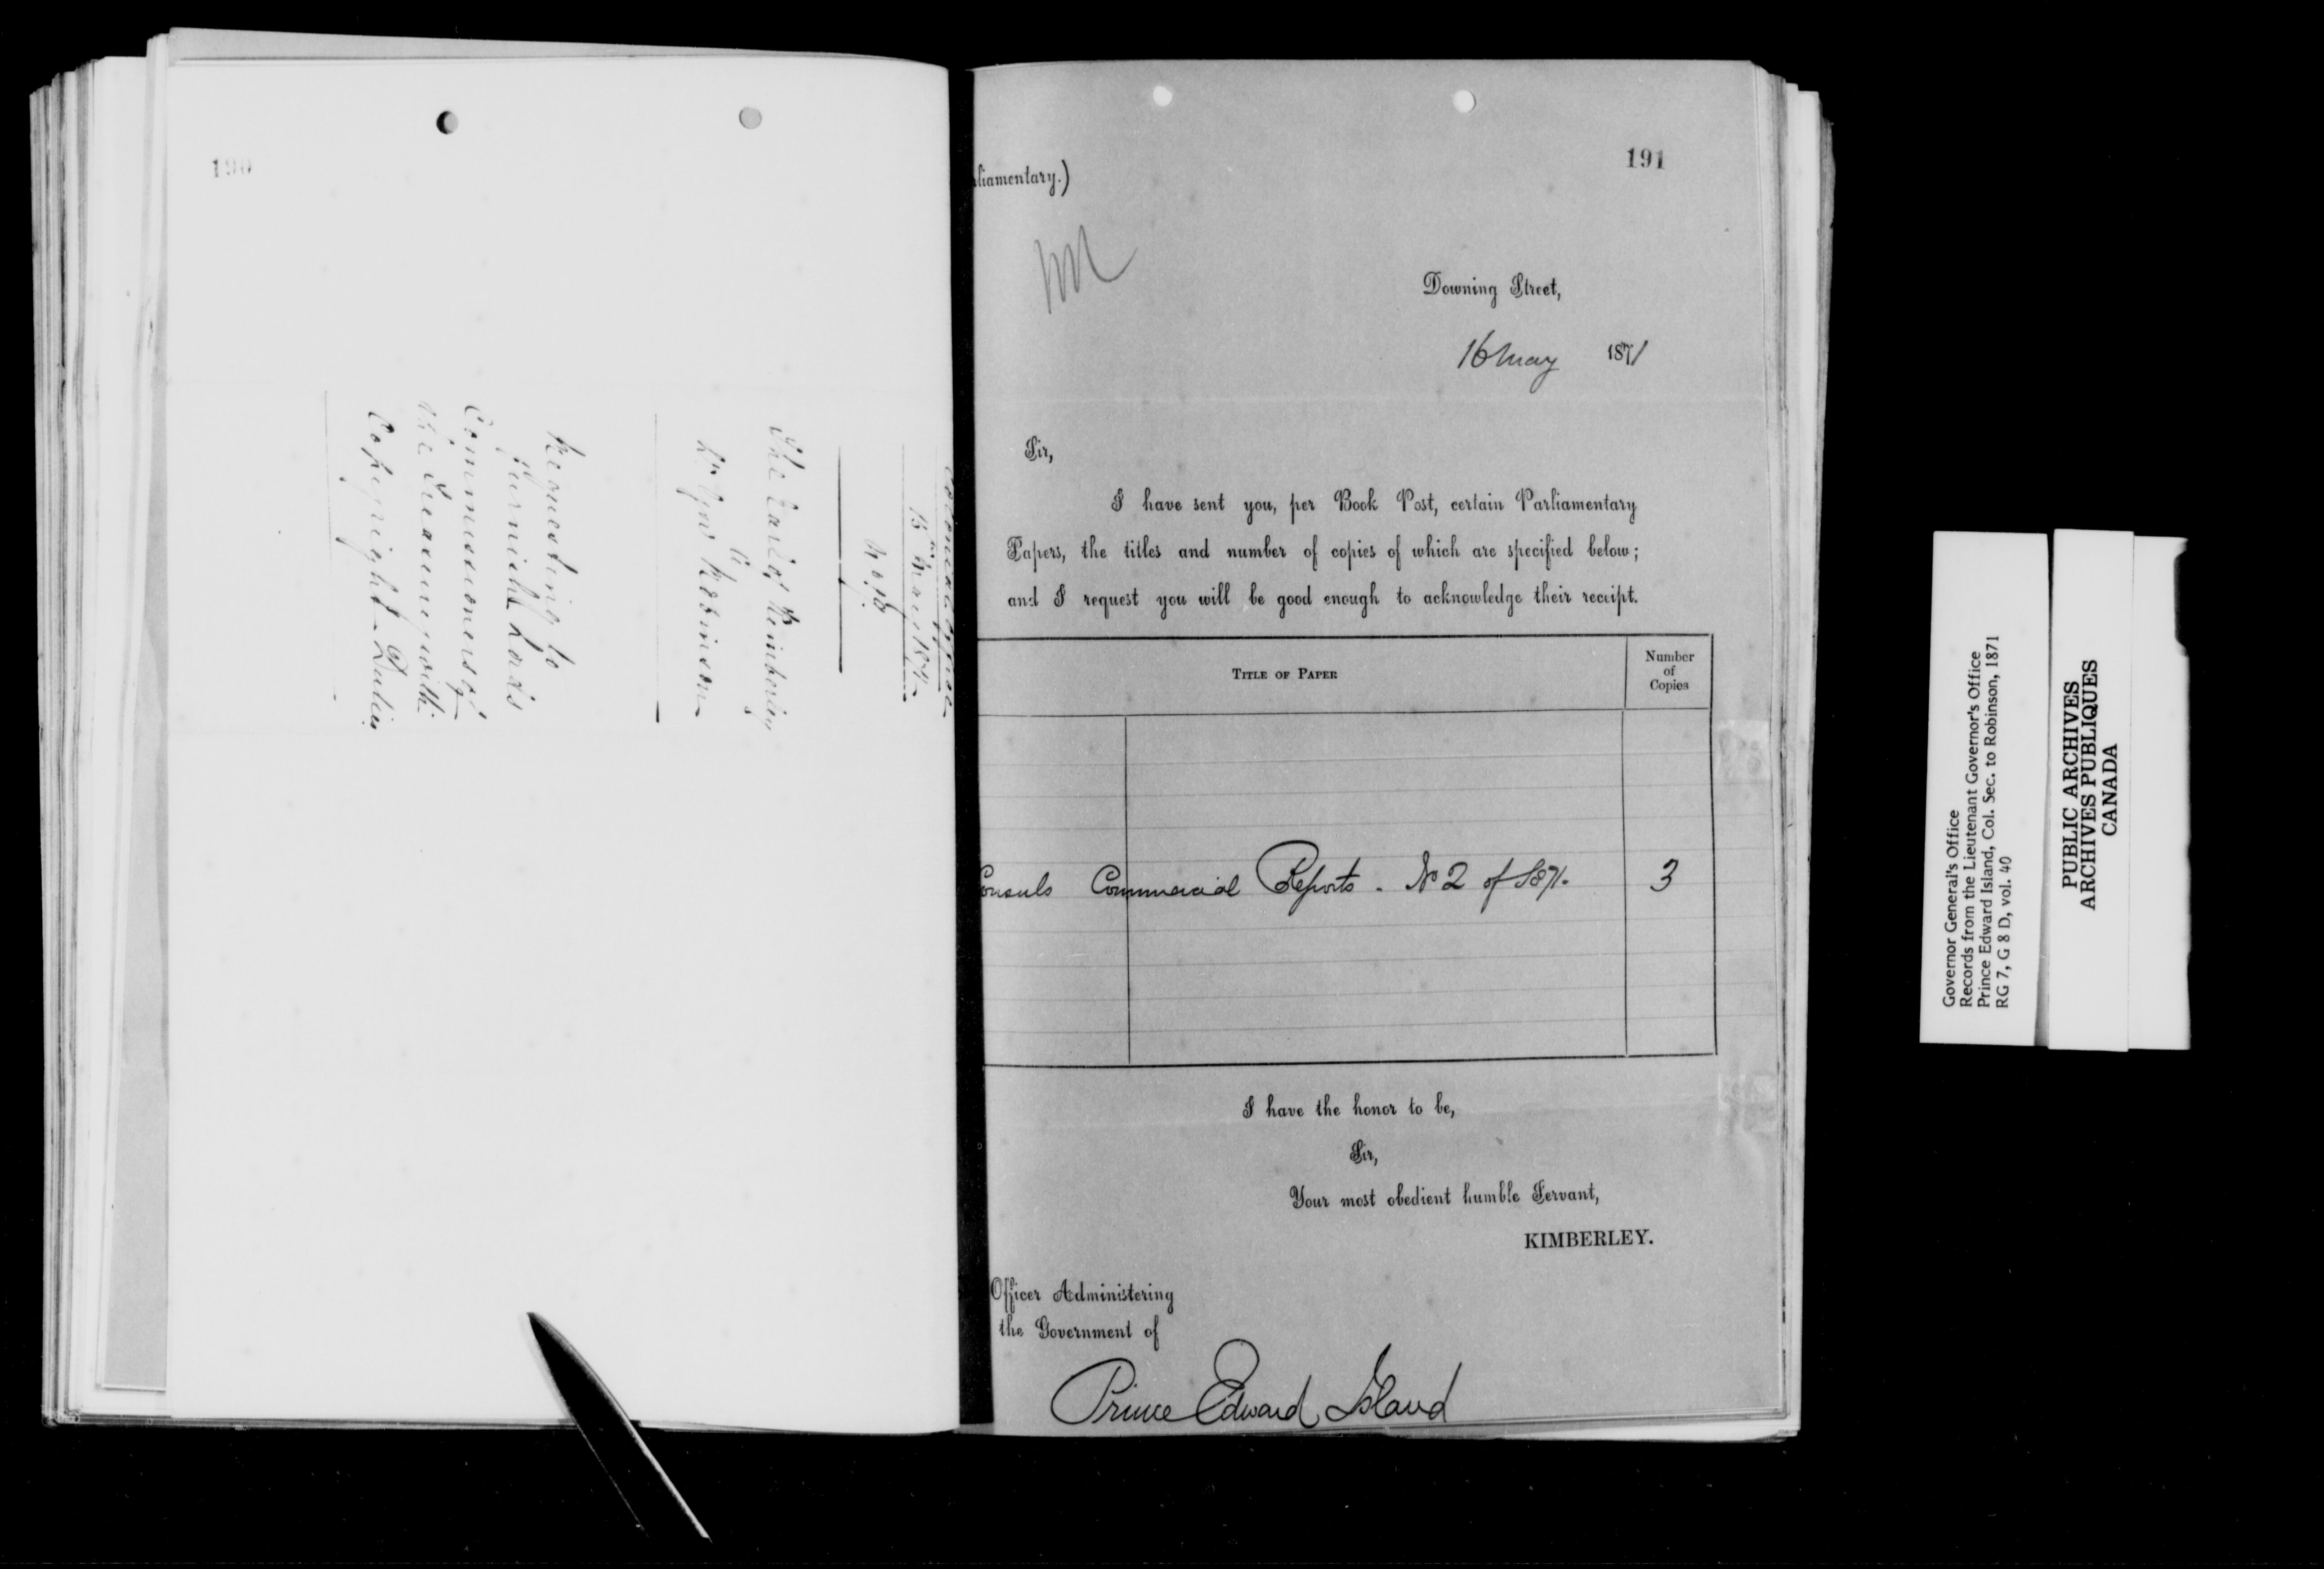 190
Colonial Office
15th May 1871
No. 18.
The Earl of Kimberley
to
Lt. Gov. Robinson
Requesting to
furnish Lords
Commissioners of
the Treasury with
Copyright Duties
191
liamentary.)
Downing Street,
16 May 1871
Sir,
I have sent you, per Book Post, certain Parliamentary
Papers, the titles and number of copies of which are specified below;
and I request you will be good enough to acknowledge their receipt.
TITLE OF PAPER
Number
of
Copies
Consuls Commercial Reports. No 2 of 1871.
3
I have the honor to be,
Sir,
Your most obedient humble Servant,
KIMBERLEY.
Officer Administering
the Government of
Prince Edward Island
Governor General's Office
Records from the Lieutenant Governor's Office
Prince Edward Island, Col. Sec. to Robinson, 1871
RG 7, G 8 D, vol. 40
PUBLIC ARCHIVES
ARCHIVES PUBLIQUES
CANADA